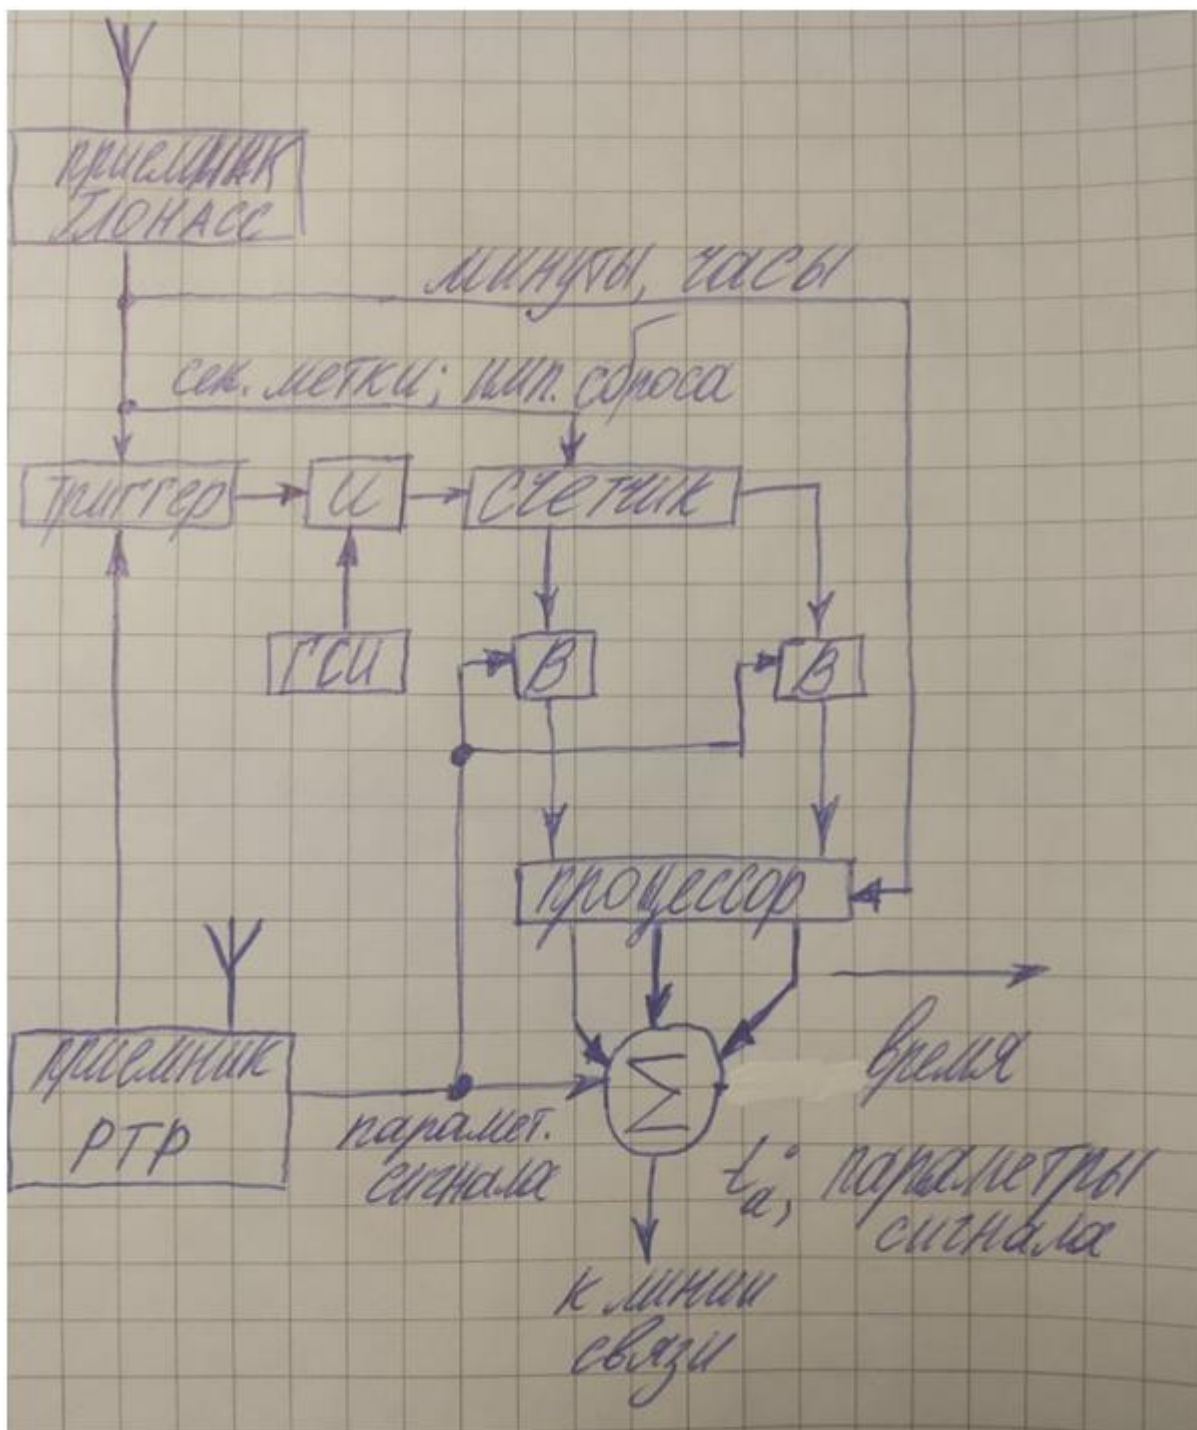 приемник
ГЛОНАСС
минуты, часы
сек. метки; имп. сброса
триггер
и
счетчик
ГСИ
В
В
процессор
время
приемник
РТР
парамет.
сигнала
Σ
tₐ; параметры
сигнала
к линии
связи